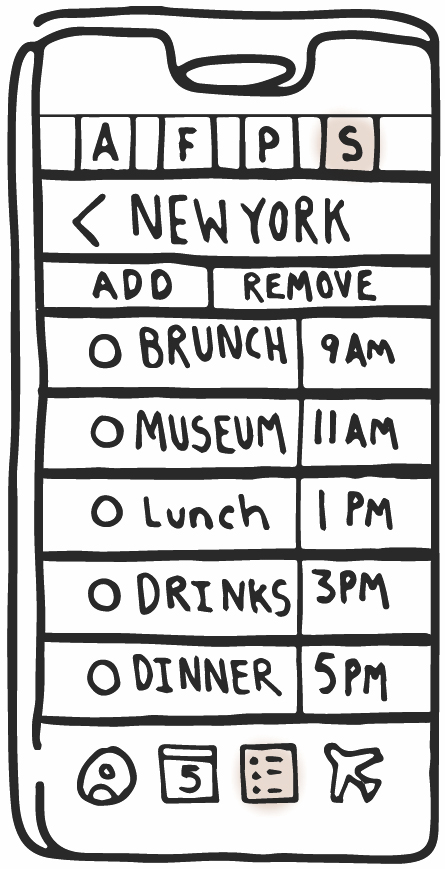 A F P S
< NEW YORK
ADD REMOVE
BRUNCH 9AM
MUSEUM 11AM
Lunch 1 PM
DRINKS 3PM
DINNER 5PM
5